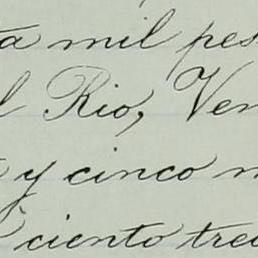 ta mil pes
l Rio, Ven
y cinco m
ciento trei